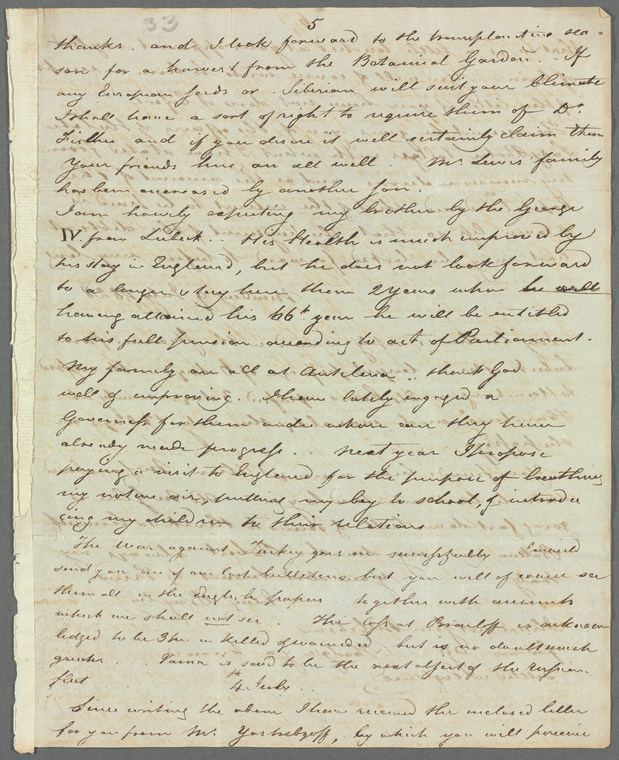 33
5
thanks. and I look forward to the transplanting sea=
son for a harvest from the Botanical Garden. - If
any European seeds or Siberian will suit your Climate
I shall have a sort of right to require them of Dr.
Fisher and if you desire it will certainly claim them
Your friends here are all well. Mr. Lewis family
has been increased by another Son
I am hourly expecting my brother by the George
IV. from Lubeck .. His Health is much improved by
his stay in England, but he does not look forward
to a longer stay here than 2 years when he will
having attained his 66th year he will be entitled
to his full pension according to act of Parliament.
My family are all at .. thank God
well & improving. I have lately engaged a
Governess for them under whose care they have
already made progress .. next year I propose
paying a visit to England for the purpose of breathing
my native air, putting my boy to school, & introdu
cing my children to their relations
The War against Turkey goes on successfully I would
send you one of our last bulletins but you will of course see
them all in the English papers together with accounts
which we shall not see. The loss at Brailoff is acknow
ledged to be 3000 in killed & wounded but is no doubt much
greater. Varna is said to be the next object of the Russian
fleet 4th July ..
Since writing the above I have received the inclosed letter
for you from Mr. Yastrebzoff, by which you will perceive